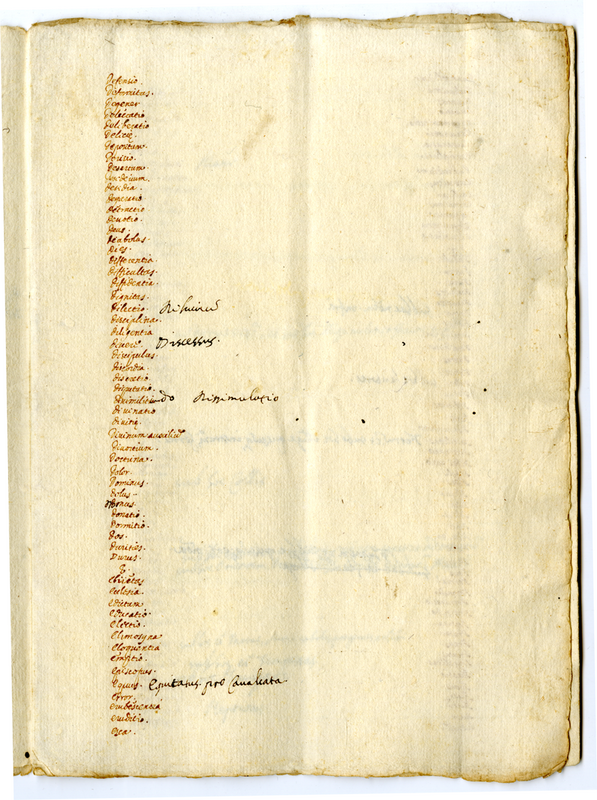 Defensio.
Deformitas.
Degener
Delectatio
Deliberatio
Delitię.
Depositum.
Derisio.
Desertum.
Desiderium.
Desidia.
Desperatio
Detractio
Deuotio.
Deus.
Diabolus.
Dies.
Differentia
Difficultas.
Diffidentia.
Dignitas.
Dilectio.
Disciplina.
Diligentia
Discessus.
Discipulus.
Discordia.
Discretio
Disputatio.
Dissimilitudo Dissimulatio
Diuinatio
Diuitię.
Diuinum auxiliũ
Diuortium.
Doctrina.
Dolor.
Dominus.
Dolus
Domus
Donatio.
Dormitio.
Dos.
Durities.
Durus.
E.
Ebrietas
Ecclesia.
Edictum
Educatio.
Electio.
Elimosyna
Eloquentia
Emptio.
Episcopus.
Equus. Equitatus pro Caualcata
Error.
Erubescentia
Eruditio.
Esca.